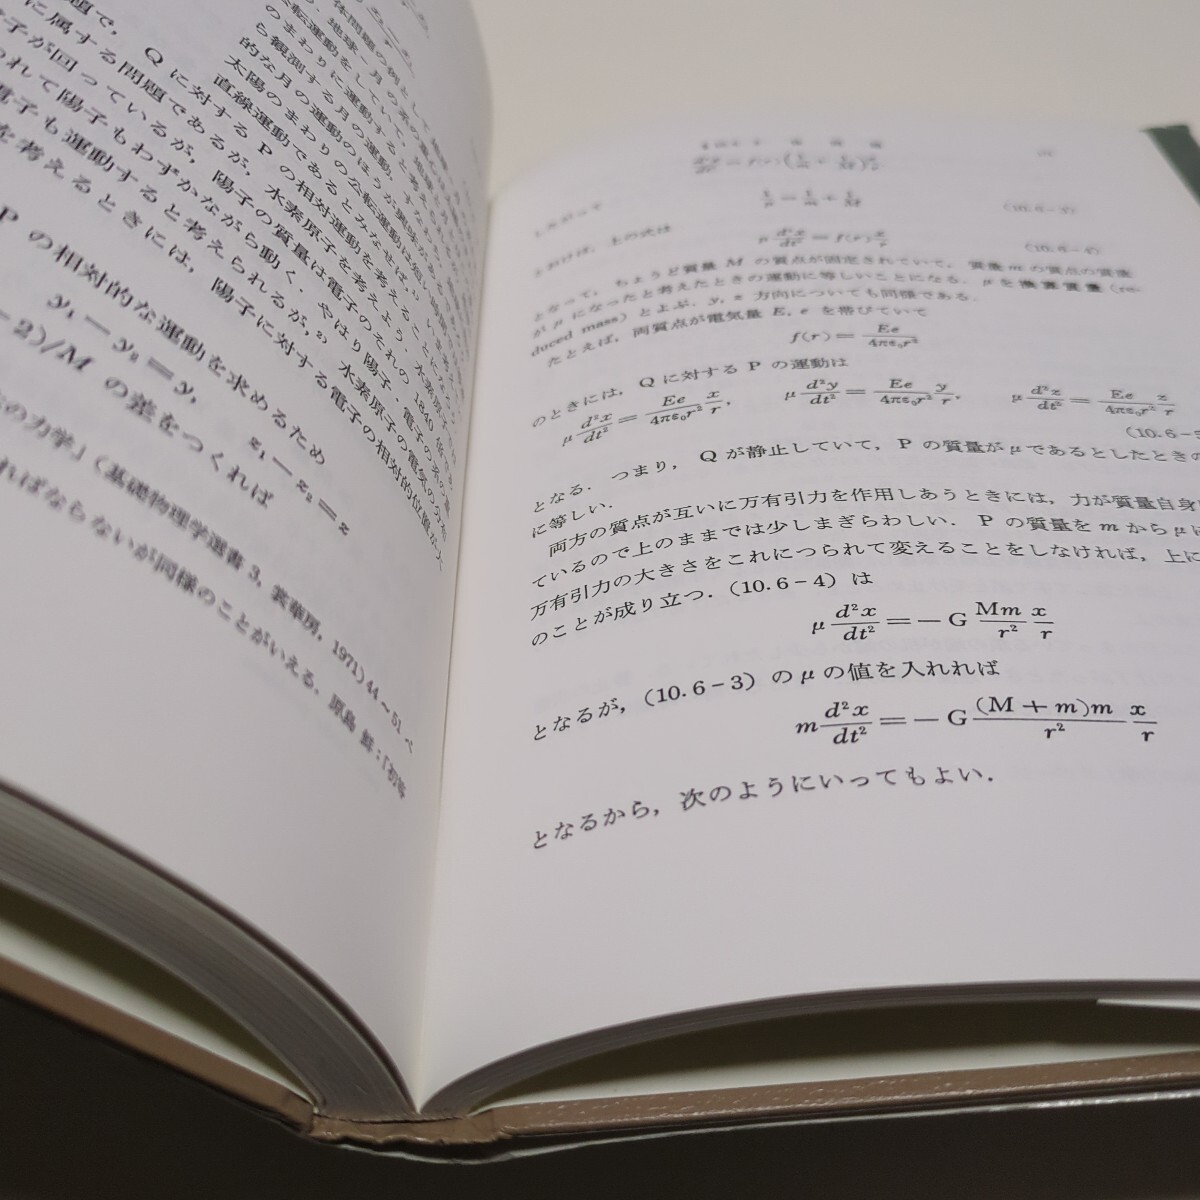 体問題の例として
転運動をしていて，地球と月
のまわりに運動すると考えられ
ら観測する月の運動，すなわち
的な月の運動のほうが興味がある
太陽のまわりの公転運動は短い時間
直線運動であるとみなせば，
題で，Q に対する P の相対運動を考えることになる
に属する問題であるが，水素原子を考えよう．水素原子
子が回っているが，陽子の質量は電子のそれの 1840 倍
られて陽子もわずかながら動く．やはり陽子・電子の系の
電子も運動すると考えられるが，²⁾ 水素原子の電気の分布
を考えるときには，陽子に対する電子の相対的位置が大
P の相対的な運動を求めるため
y₁−y₂＝y， z₁−z₂＝z
−2)/M の差をつくれば
の力学」（基礎物理学選書 3，裳華房，1971）44〜51 ペ
ればならないが同様のことがいえる．原島 鮮：「初等
d²x/dt² = f(r)(1/m + 1/M)x/r
したがって
1/μ = 1/m + 1/M (10.6−3)
とおけば，上の式は
μ d²x/dt² = f(r) x/r (10.6−4)
となって，ちょうど質量 M の質点が固定されていて，質量 m の質点の質量
が μ になったと考えたときの運動に等しいことになる．μ を換算質量（re-
duced mass）とよぶ．y，z 方向についても同様である．
たとえば，両質点が電気量 E，e を帯びていて
f(r) = Ee/4πε₀r²
のときには，Q に対する P の運動は
μ d²x/dt² = Ee/4πε₀r² x/r， μ d²y/dt² = Ee/4πε₀r² y/r， μ d²z/dt² = Ee/4πε₀r² z/r
(10.6−5
となる．つまり，Q が静止していて，P の質量が μ であるとしたときの
に等しい．
両方の質点が互いに万有引力を作用しあうときには，力が質量自身
ているので上のままでは少しまぎらわしい．P の質量を m から μ に
万有引力の大きさをこれにつられて変えることをしなければ，上に
のことが成り立つ．(10.6−4) は
μ d²x/dt² = −G Mm/r² x/r
となるが，(10.6−3) の μ の値を入れれば
m d²x/dt² = −G (M+m)m/r² x/r
となるから，次のようにいってもよい．